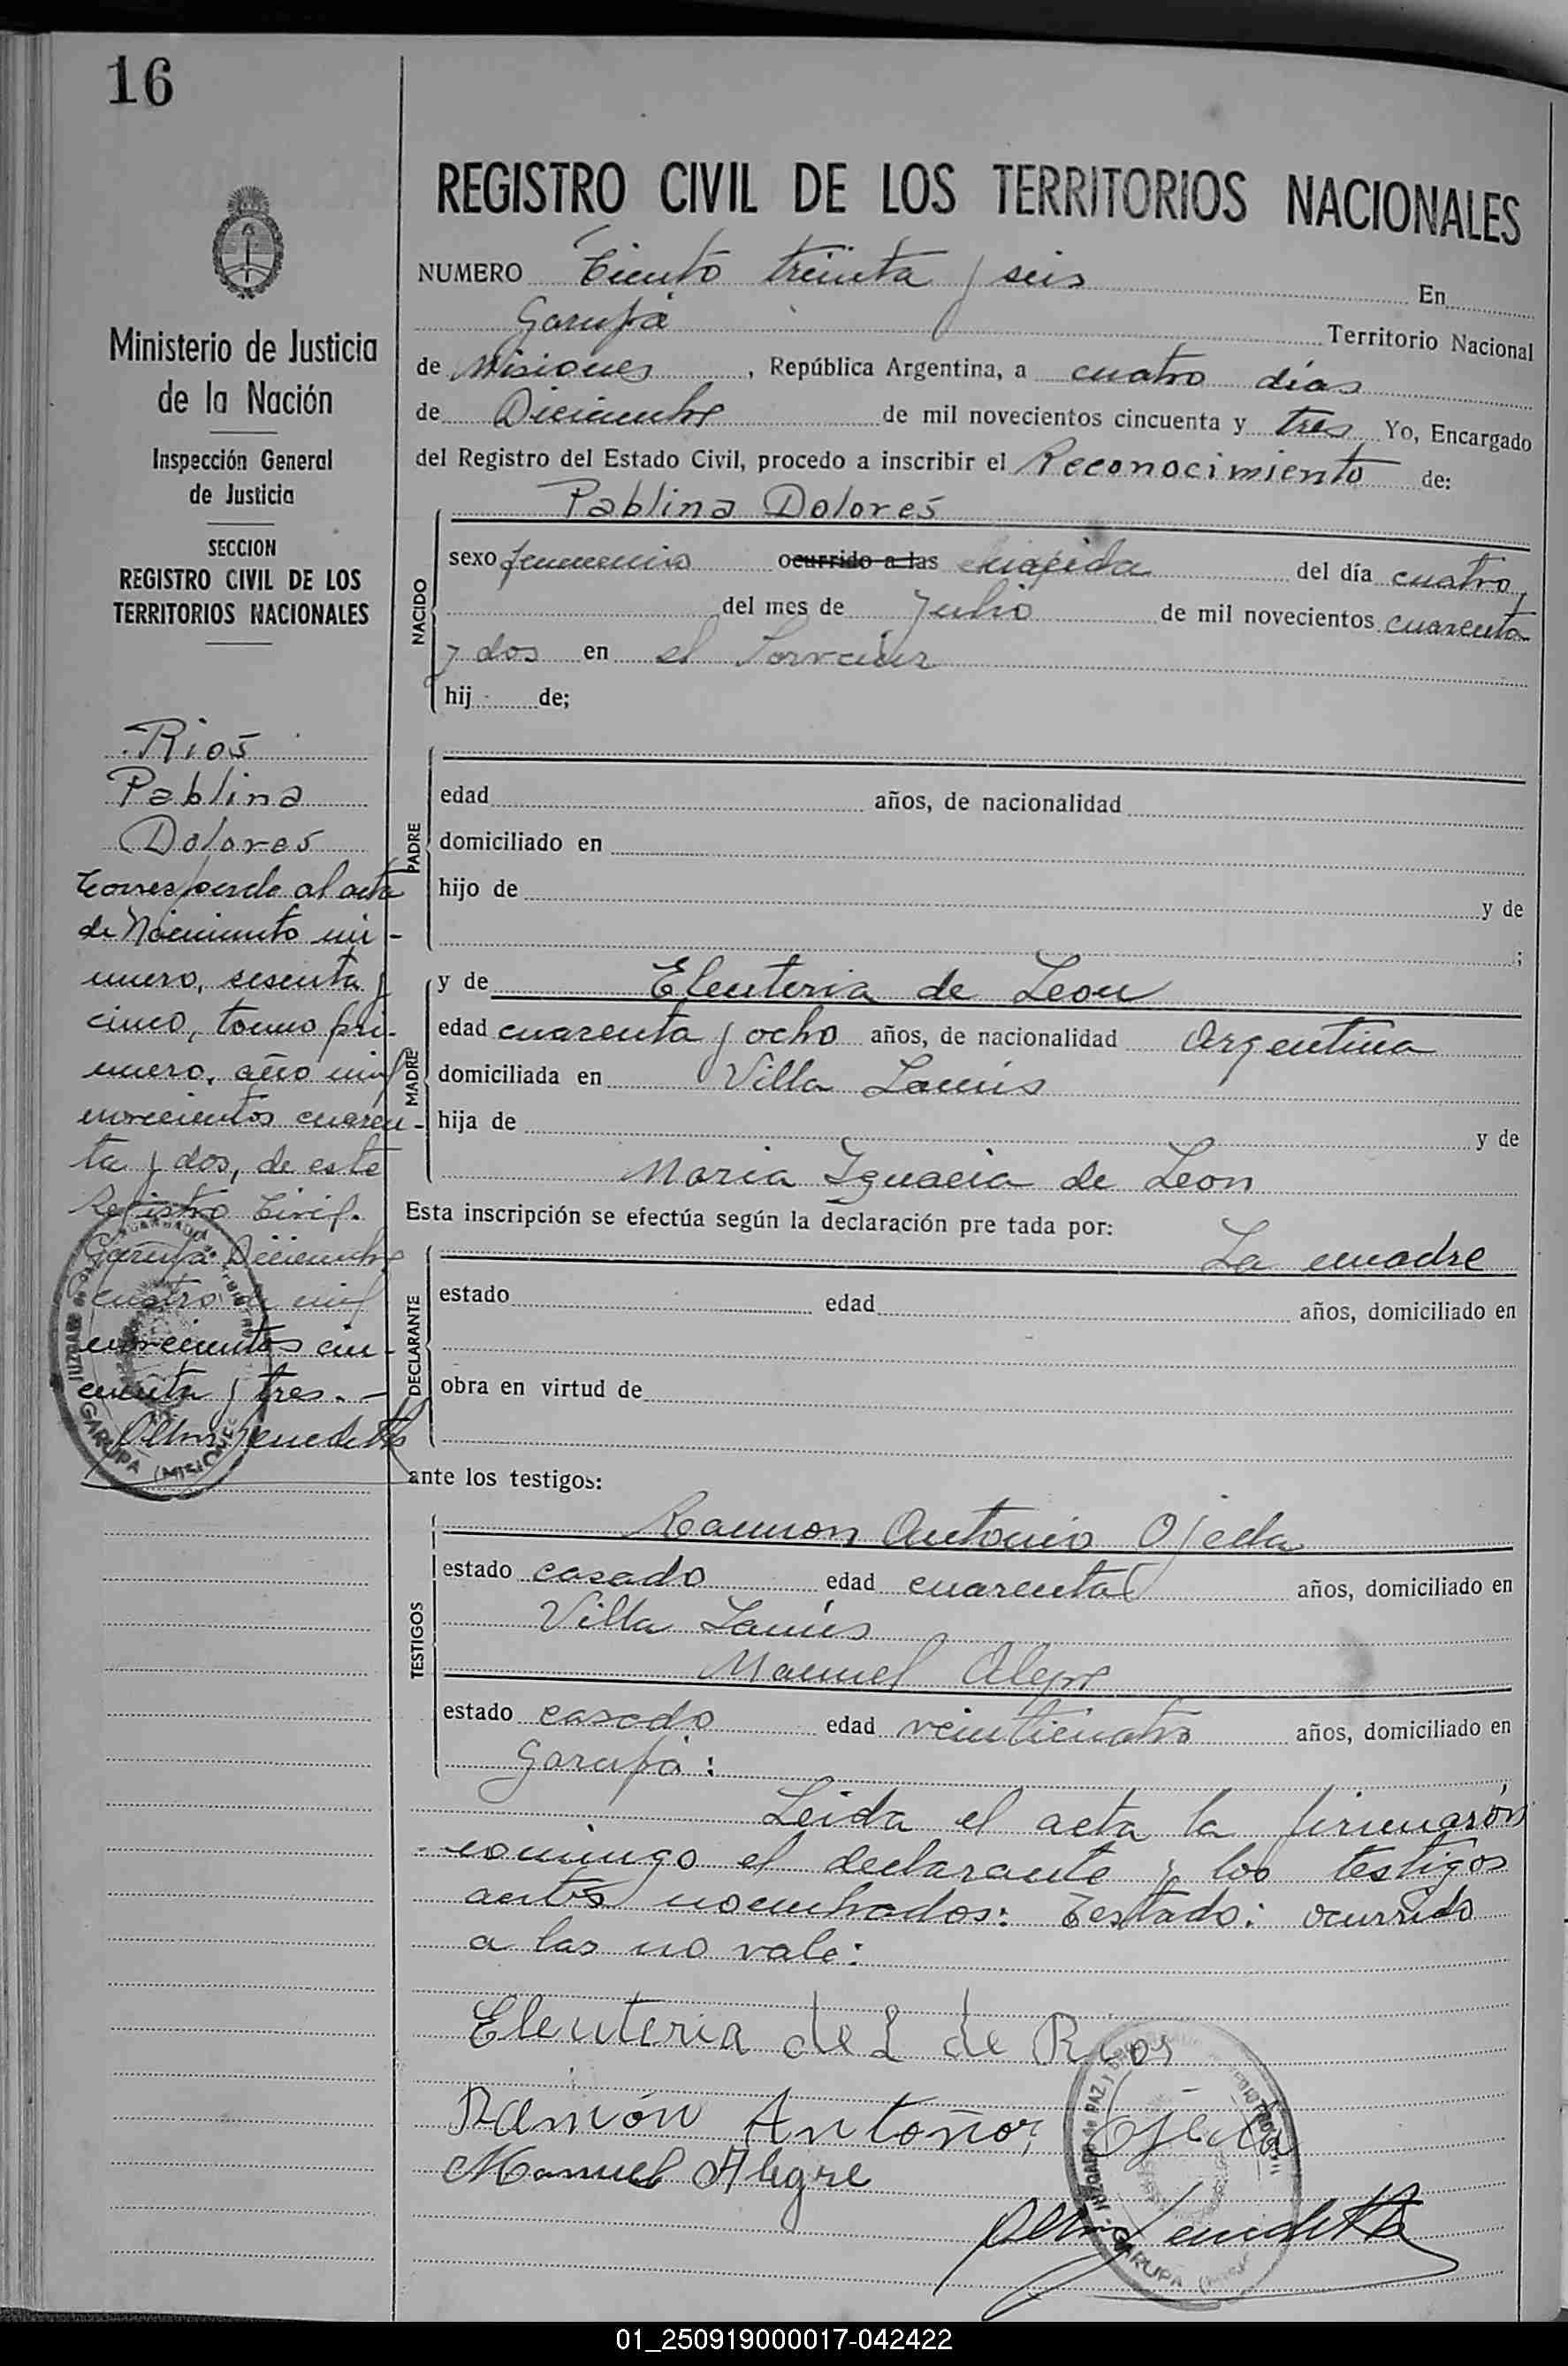 16
REGISTRO CIVIL DE LOS TERRITORIOS NACIONALES
NUMERO Ciento treinta y seis En
Garupá Territorio Nacional
de Misiones, República Argentina, a cuatro días
de Diciembre de mil novecientos cincuenta y tres Yo, Encargado
del Registro del Estado Civil, procedo a inscribir el Reconocimiento de:
Pablina Dolores
NACIDO
sexo femenino ocurrido a las nacida del día cuatro,
del mes de Julio de mil novecientos cuarenta
y dos en el
hij de;
PADRE
edad años, de nacionalidad
domiciliado en
hijo de y de
;
MADRE
y de Eleuteria de Leon
edad cuarenta y ocho años, de nacionalidad Argentina
domiciliada en Villa Lanús
hija de y de
Maria Ignacia de Leon
Esta inscripción se efectúa según la declaración pre tada por:
La madre
DECLARANTE
estado edad años, domiciliado en
obra en virtud de
ante los testigos:
Ramon Antonio Ojeda
TESTIGOS
estado casado edad cuarenta años, domiciliado en
Villa Lanús
Manuel Alegre
estado casado edad veinticuatro años, domiciliado en
Garupá:
Leida el acta la firmarón
comingo el declarante y los testigos
antes nombrados: Testado: ocurrido
a las no vale:
Eleuteria de L de Rios
Ramón Antonio Ojeda
Manuel Alegre
Ministerio de Justicia
de la Nación
Inspección General
de Justicia
SECCION
REGISTRO CIVIL DE LOS
TERRITORIOS NACIONALES
Rios
Pablina
Dolores
Corresponde al acta
de Nacimiento nú-
mero, sesenta y
cinco, tomo pri-
mero, año mil
novecientos cuaren-
ta y dos, de este
Registro Civil.
Garupá Diciembre
cuatro de mil
novecientos cin-
cuenta y tres.-
JUZGADO de PAZ
GARUPA (MISIONES)
JUZGADO de PAZ y
GARUPA
01_250919000017-042422